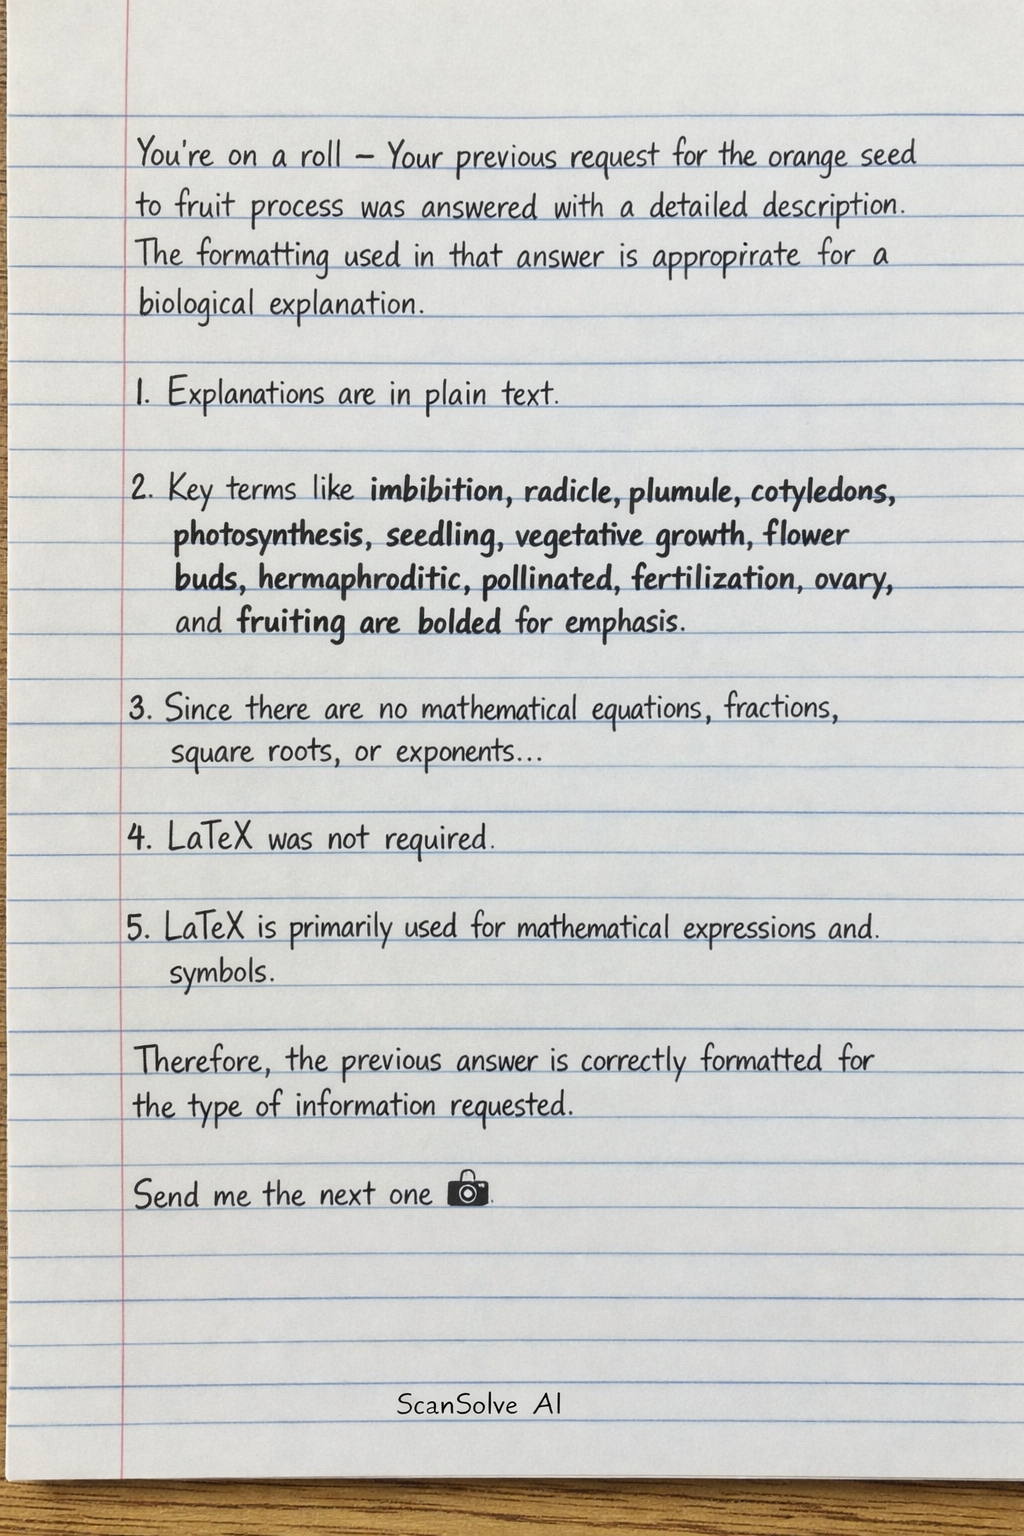 You're on a roll – Your previous request for the orange seed
to fruit process was answered with a detailed description.
The formatting used in that answer is appropirate for a
biological explanation.
1. Explanations are in plain text.
2. Key terms like imbibition, radicle, plumule, cotyledons,
photosynthesis, seedling, vegetative growth, flower
buds, hermaphroditic, pollinated, fertilization, ovary,
and fruiting are bolded for emphasis.
3. Since there are no mathematical equations, fractions,
square roots, or exponents...
4. LaTeX was not required.
5. LaTeX is primarily used for mathematical expressions and.
symbols.
Therefore, the previous answer is correctly formatted for
the type of information requested.
Send me the next one 📷.
ScanSolve AI